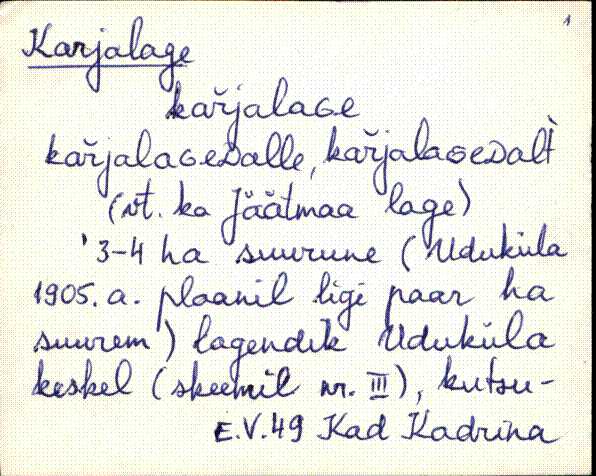 1
Karjalage
kařjalaGe
kařjalaGeDalle, kařjalaGeDalt̀
(vt. ka Jäätmaa lage)
'3-4 ha suurune (Uduküla
1905. a. plaanil ligi paar ha
suurem) lagendik Uduküla
keskel (skeemil nr. III), kutsu-
E.V.49 Kad Kadrina